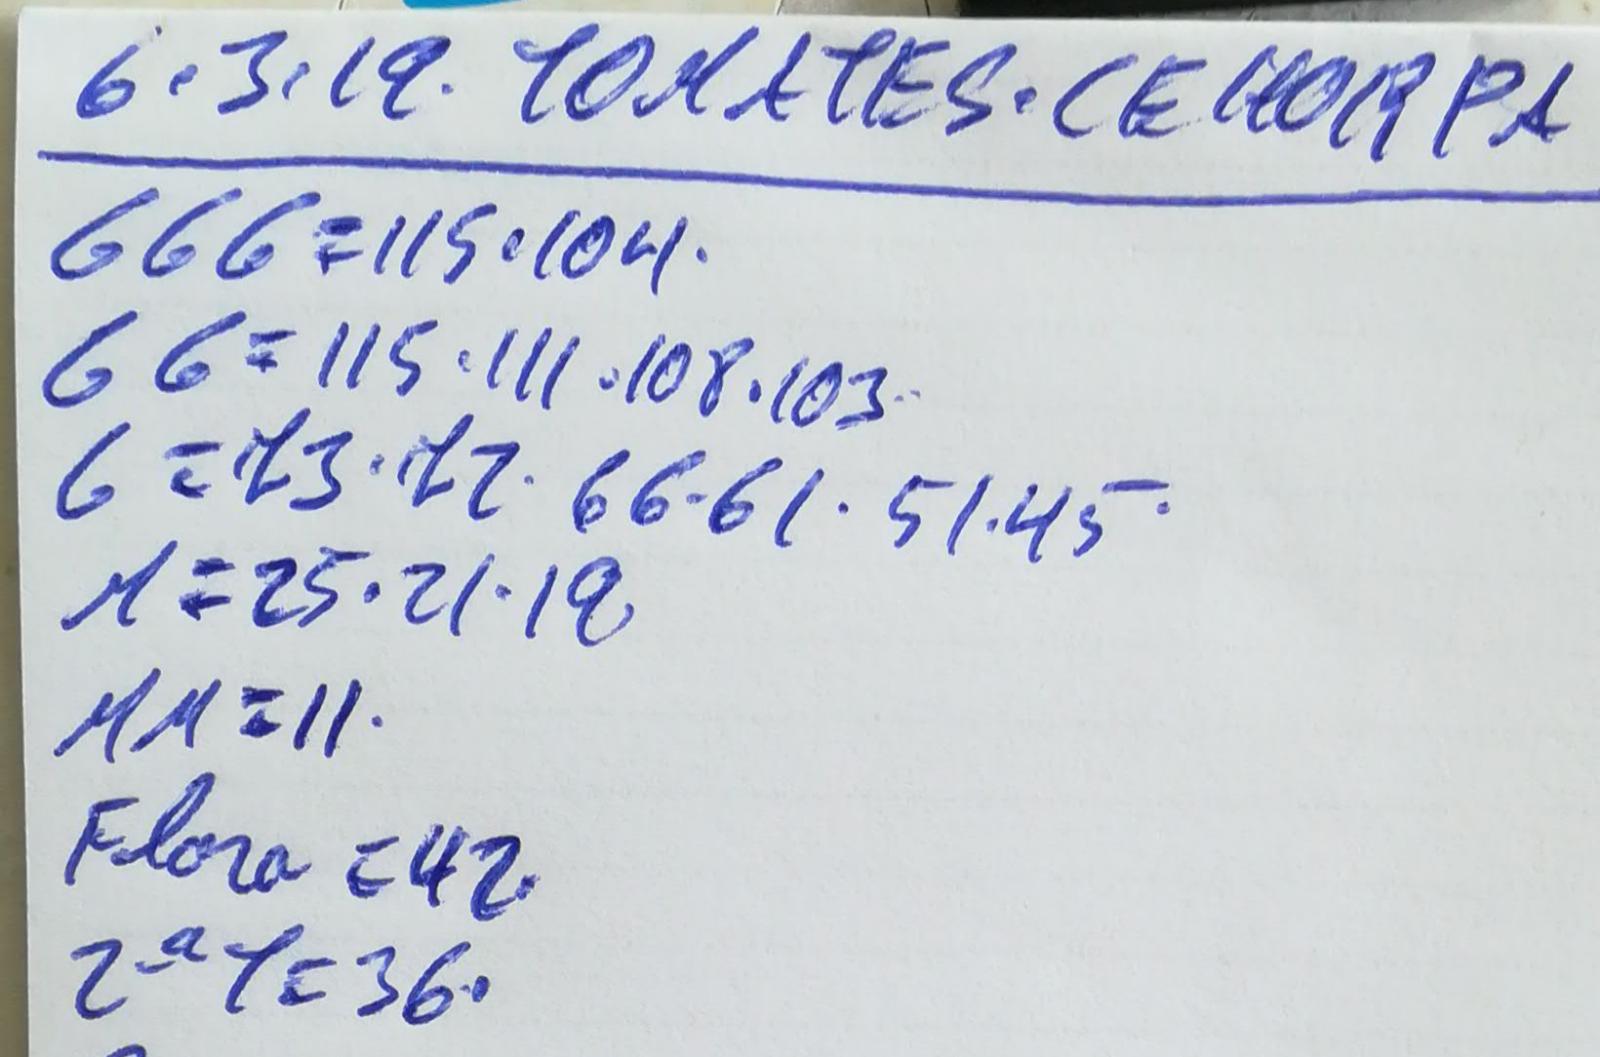 6.3.19. TOMATES.CEHORPA
GGG=115.104.
GG=115.111.108.103.
G=73.72.66.61.51.45.
M=25.21.19
MM=11.
Flora=42.
2ªT=36.